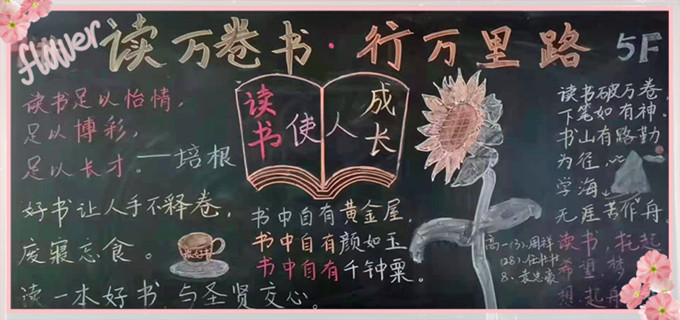 flower
读万卷书·行万里路
5F
读书足以怡情,
足以博彩,
足以长才。——培根
好书让人手不释卷,
废寝忘食。
读一本好书,与圣贤交心。
读书使人成长
书中自有黄金屋,
书中自有颜如玉
书中自有千钟粟。
读书破万卷,
下笔如有神.
书山有路勤
为径,
学海
无涯苦作舟。
读书,托起
希望梦
想起舟
高一(3).周祥